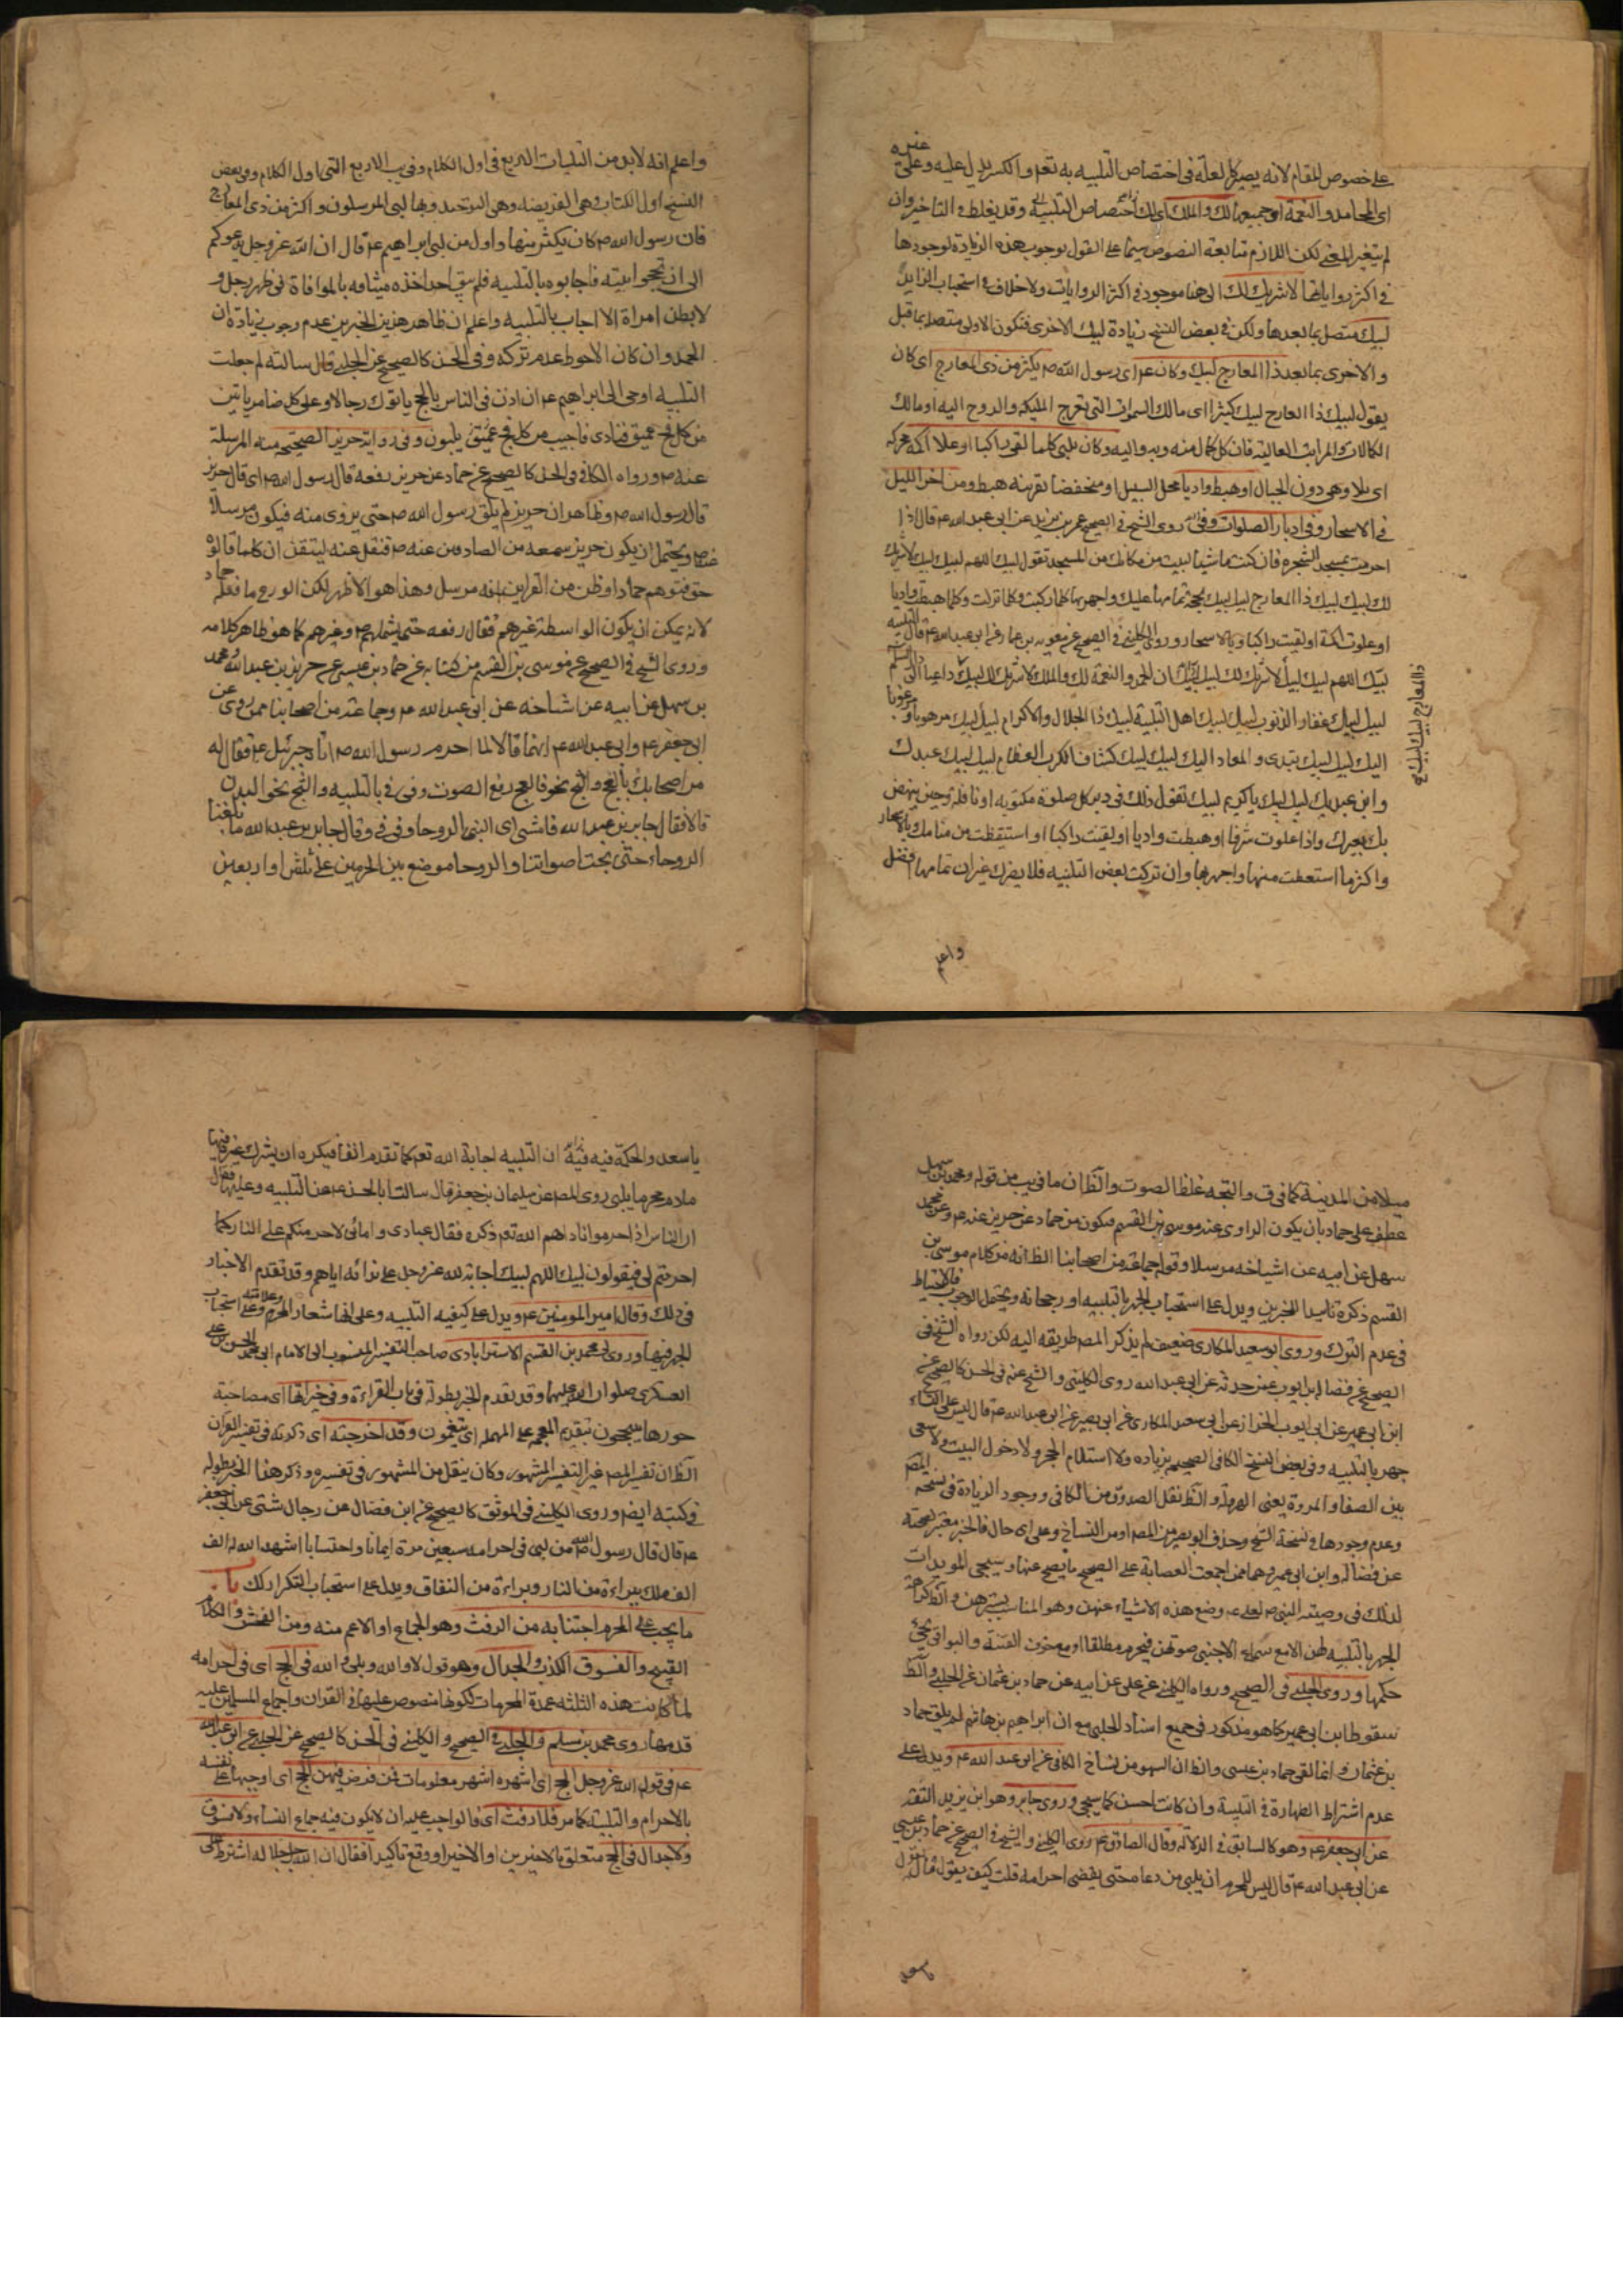 على خصوص المقام لانه يصير كالعلة فى اختصاص التلبيه به تعم والكسر يدل عليه وعلى غيره
اى المحامد والنعمة اى جميعها لك والملك اى لك اختصاص التلبية وقد يغلط فى التاخير وان
لم يتغير المعنى لكن اللازم متابعة النصوص سيما على القول بوجوب هذه الزيادة لوجودها
فى اكثر رواياتها لا شريك لك الى هنا موجود فى اكثر الروايات ولا خلاف فى استحباب الزايد
لبيك متصل بما بعدها ولكن فى بعض النسخ زيادة لبيك الاخرى فتكون الاولى متصله بما قبل
والاخرى بما بعد ذا المعارج لبيك وكان عم اى رسول الله ص يكثر من ذى المعارج اى كان
يقول لبيك ذا المعارج لبيك كثيرا اى مالك السموات التى تعرج المليكه والروح اليه او مالك
الكمالات والمراتب العالية فان كل كمال منه وبه واليه وكان يلبى كلما لقى راكبا او علا اكمة محركه
اى تلا وهى دون الجبال او هبط واديا محل السيل او منخفضا بقرينه هبط ومن اخر الليل
فى الاسحار وفى ادبار الصلوات روى الشيخ فى الصحيح عمر بن يزيد عن ابى عبد الله عم قال اذا
احرمت بمسجد الشجره فان كنت ماشيا لبيت من مكانك من المسجد تقول لبيك اللهم لبيك لبيك لا شريك
لك لبيك لبيك ذا المعارج لبيك لبيك بحجة تمامها عليك واجهر بها كلما ركبت وكلما نزلت وكلما هبطت واديا
او علوت اكمة او لقيت راكبا وبالاسحار وروى الكلينى فى الصحيح عن معويه بن عمار عن ابى عبد الله عم قال التلبيه
لبيك اللهم لبيك لبيك لا شريك لك لبيك ان الحمد والنعمة لك والملك لا شريك لك لبيك داعيا الى دار السلم
لبيك لبيك غفار الذنوب لبيك لبيك اهل التلبية لبيك ذا الجلال والاكرام لبيك لبيك مرهوبا ومرغوبا
اليك لبيك لبيك تبدى والمعاد اليك لبيك لبيك كشاف الكرب العظام لبيك لبيك عبدك
وابن عبديك لبيك لبيك يا كريم لبيك تقول ذلك فى دبر كل صلوة مكتوبه او نافلة وحين ينهض
بك بعيرك واذا علوت شرفا او هبطت واديا او لقيت راكبا او استيقظت من منامك وبالاسحار
واكثر ما استطعت منها واجهر بها وان تركت بعض التلبيه فلا يضرك غير ان تمامها افضل
ذا المعارج لبيك لبيك
واعلم
واعلم انه لابد من التلبيات الاربع فى اول الكلام وفى يب الاربع التى اول الكلام وفى بعض
النسخ اول الكتاب وهى الفريضه وهى التوحيد وبها لبى المرسلون واكثر من ذى المعارج
فان رسول الله ص كان يكثر منها واول من لبى ابراهيم عم قال ان الله عز وجل يدعوكم
الى ان تحجوا بيته فاجابوه بالتلبيه فلم يبق احد اخذه ميثاقه بالموافاة فى ظهر رجل و
لا بطن امراة الا اجاب بالتلبيه واعلم ان ظاهر هذين الخبرين عدم وجوب زيادة ان
الحمد وان كان الاحوط عدم تركه وفى الحسن كالصحيح عن الحلبى قال سالته لم جعلت
التلبيه اوحى الى ابراهيم عم ان اذن فى الناس بالحج ياتوك رجالا وعلى كل ضامر ياتين
من كل فج عميق فنادى فاجيب من كل فج عميق يلبون وفى رواية حريز الصحيحة المرسلة
عنه ص ورواه الكافى فى الحسن كالصحيح عن حماد عن حريز رفعه قال رسول الله ص اى قال حريز
قال رسول الله ص وظاهر ان حريز لم يلق رسول الله ص حتى يروى منه فيكون مرسلا
عنه ص ويحتمل ان يكون حريز سمعه من الصادقين عنه ص فنقل عنه ليتيقن ان كلما قالوه
حق فتوهم حماد او ظن من القراين انه مرسل وهذا هو الاظهر لكن الورع ما فعله حماد
لانه يمكن ان يكون الواسطة غيرهم فقال رفعه حتى يشملهم ص وغيرهم كما هو ظاهر كلامه
وروى الشيخ فى الصحيح عن موسى بن القسم من كتابه عن حماد بن عيسى عن حريز بن عبد الله ومحمد
بن سهل عن ابيه عن اشياخه عن ابى عبد الله عم وجماعة من اصحابنا ممن روى عن
ابى جعفر عم وابى عبد الله عم انهما قالا لما احرم رسول الله ص اتاه جبرئيل عم فقال له
مر اصحابك بالعج والثج نحو فالعج رفع الصوت وفى فى بالتلبيه والثج نحو البدن
قالا فقال جابر بن عبد الله فامشى اى النبى بالروحا وفى فى وقال جابر بن عبد الله ما بلغنا
الروحاء حتى بحت اصواتنا والروحا موضع بين الحرمين على ثلثين او اربعين
ميلا من المدينة كما فى ق والبحه غلظ الصوت والظ ان ما فى يب من قوله ومحمد بن سهل
عطف على حماد بان يكون الراوى عنه موسى بن القسم فيكون من حماد عن حريز عنه عم وعن محمد
سهل عن ابيه عن اشياخه مرسلا وقوله جماعة من اصحابنا الظ انه من كلام موسى بن
القسم ذكره تاييدا للخبرين ويدل على استحباب الجهر بالتلبيه او رجحانه ويحتمل الوجوب فالاحتياط
فى عدم الترك وروى ابو سعيد المكارى ضعيف لم يذكر المصم طريقه اليه لكن رواه الشيخ فى
الصحيح عن فضالة بن ايوب عمن حدثه عن ابى عبد الله روى الكلينى والشيخ عنه فى الحسن كالصحيح عن
ابن ابى عمير عن ابى ايوب الخراز عن ابى سعيد المكارى عن ابى بصير عن ابى عبد الله عم قال ليس على النساء
جهر بالتلبيه وفى بعض النسخ الكافى الصحيحه بزياده ولا استلام الحجر ولا دخول البيت ولا سعى
بين الصفا والمروة يعنى الهرولة والظ نقل الصدوق من الكافى ووجود الزيادة فى نسخه المصم
وعدم وجودها فى نسخة الشيخ وحذف ابو بصير من المصم او من النساخ وعلى اى حال فالخبر معتبر لصحته
عن فضالة وابن ابى عمير وهما ممن اجمعت العصابة على الصحيح ما يصح عنهما وسيجى المويدات
لذلك فى وصيته النبى ص لعلى عم وضع هذه الاشياء عنهن وهو المناسب لسترهن والظ كراهة
الجهر بالتلبيه لهن الا مع سماع الاجنبى صوتهن فيحرم مطلقا او مع خوف الفتنة والبواقى يجئ
حكمها وروى الحلبى فى الصحيح ورواه الكلينى عن على عن ابيه عن حماد بن عثمان عن الحلبى والظ
سقوط ابن ابى عمير كما هو مذكور فى جميع اسناد الحلبى مع ان ابراهيم بن هاشم لم يلق حماد
بن عثمان وانما لقى حماد بن عيسى والظ ان السهو من نساخ الكافى عن ابى عبد الله عم ويدل على
عدم اشتراط الطهارة فى التلبية وان كانت احسن كما سيجى وروى جابر وهو ابن يزيد الثقه
عن ابى جعفر عم وهو كالسابق فى الدلالة وقال الصادق عم روى الكلينى والشيخ فى الصحيح عن حماد بن عيسى
عن ابى عبد الله عم قال ليس للمحرم ان يلبى من دعاه حتى يقضى احرامه قلت كيف يقول قال يقول
يا سعد
يا سعد والحكمة فيه ان التلبيه اجابة الله تعم كما تقدم انفا فيكره ان يشرك غيره فيها
مادام محرما يلبى روى المصم عن سليمان بن جعفر قال سالت ابا الحسن عم عن التلبيه وعلتها فقال
ان الناس اذا احرموا ناداهم الله تعم ذكره فقال عبادى وامائى لاحرمنكم على النار كما
احرمتم لى فيقولون لبيك اللهم لبيك اجابة لله عز وجل على ندائه اياهم وقد تقدم الاخبار
فى ذلك وقال امير المومنين عم ويدل على كيفيه التلبيه وعلى انها شعار المحرم وعلامته وعلى استحباب
الجهر فيها وروى لى محمد بن القسم الاسترابادى صاحب التفسير المنسوب الى الامام ابى محمد الحسن بن على
العسكرى صلوات الله عليهما وقد تقدم الخبر بطوله فى باب القراءة وفى خيراتها اى مصاحبة
حورها يتبحبحون بتقديم المعجمه على المهمله اى يتنعمون وقد اخرجته اى ذكرته فى تفسير القران
الظ ان تفسير المصم غير التفسير المشهور وكان ينقل من المشهور فى تفسيره وذكر هذا الخبر بطوله
فى كتبه ايضم وروى الكلينى فى الموثق كالصحيح عن ابن فضال عن رجال شتى عن ابى جعفر
عم قال قال رسول الله ص من لبى فى احرامه سبعين مرة ايمانا واحتسابا اشهد الله له الف
الف ملك ببراءة من النار وبراءة من النفاق ويدل على استحباب التكرار ذلك باب
ما يجب على المحرم اجتنابه من الرفث وهو الجماع او الاعم منه ومن الفحش والكلام
القبيح والفسوق الكذب والجدال وهو قول لا والله وبلى والله فى الحج اى فى احرامه
لما كانت هذه الثلثه عمدة المحرمات لكونها منصوص عليها فى القران واجماع المسلمين عليه
قدمها روى محمد بن مسلم والحلبى فى الصحيح والكلينى فى الحسن كالصحيح عن الحلبى عن ابى عبد الله
عم فى قول الله عز وجل الحج اى اشهره اشهر معلومات فمن فرض فيهن الحج اى اوجبها على نفسه
بالاحرام والتلبية كما مر فلا رفث اى فالواجب عليه ان لا يكون فيه جماع النساء ولا فسوق
ولا جدال فى الحج متعلق بالاخيرين او الاخير او وقع تاكيدا فقال ان الله جل جلاله اشترط على